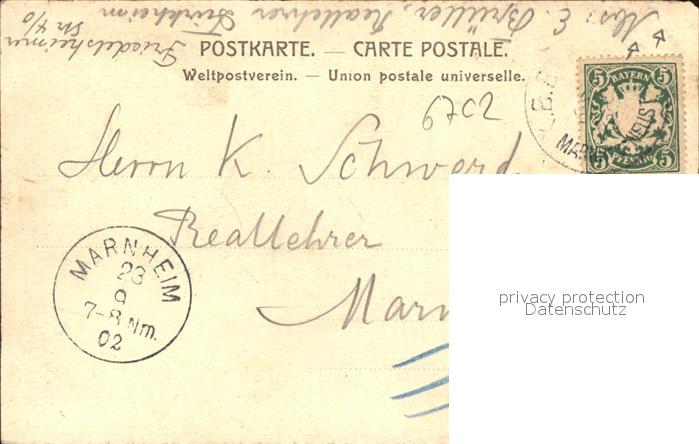 Abs: E. Brüller, Reallehrer Türkheim
Friedelsheimer
Str. 40
POSTKARTE. — CARTE POSTALE.
Weltpostverein. — Union postale universelle.
5 BAYERN 5
5 PFENNIG 5
6702
Herrn K. Schword
Reallehrer
Marn
MARNHEIM
23
9
7-8 Nm.
02
privacy protection
Datenschutz